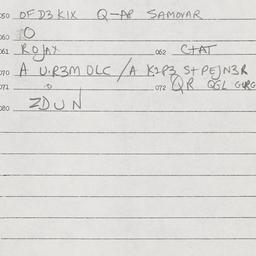 050 OFD3KIX Q-AP SAMOVAR
060 IO
061 ROJAX 062 CTAT
070 A U.R3M DLC / A K1P3 St PEJN3R
071 072 QR QGL
080 ZDUN